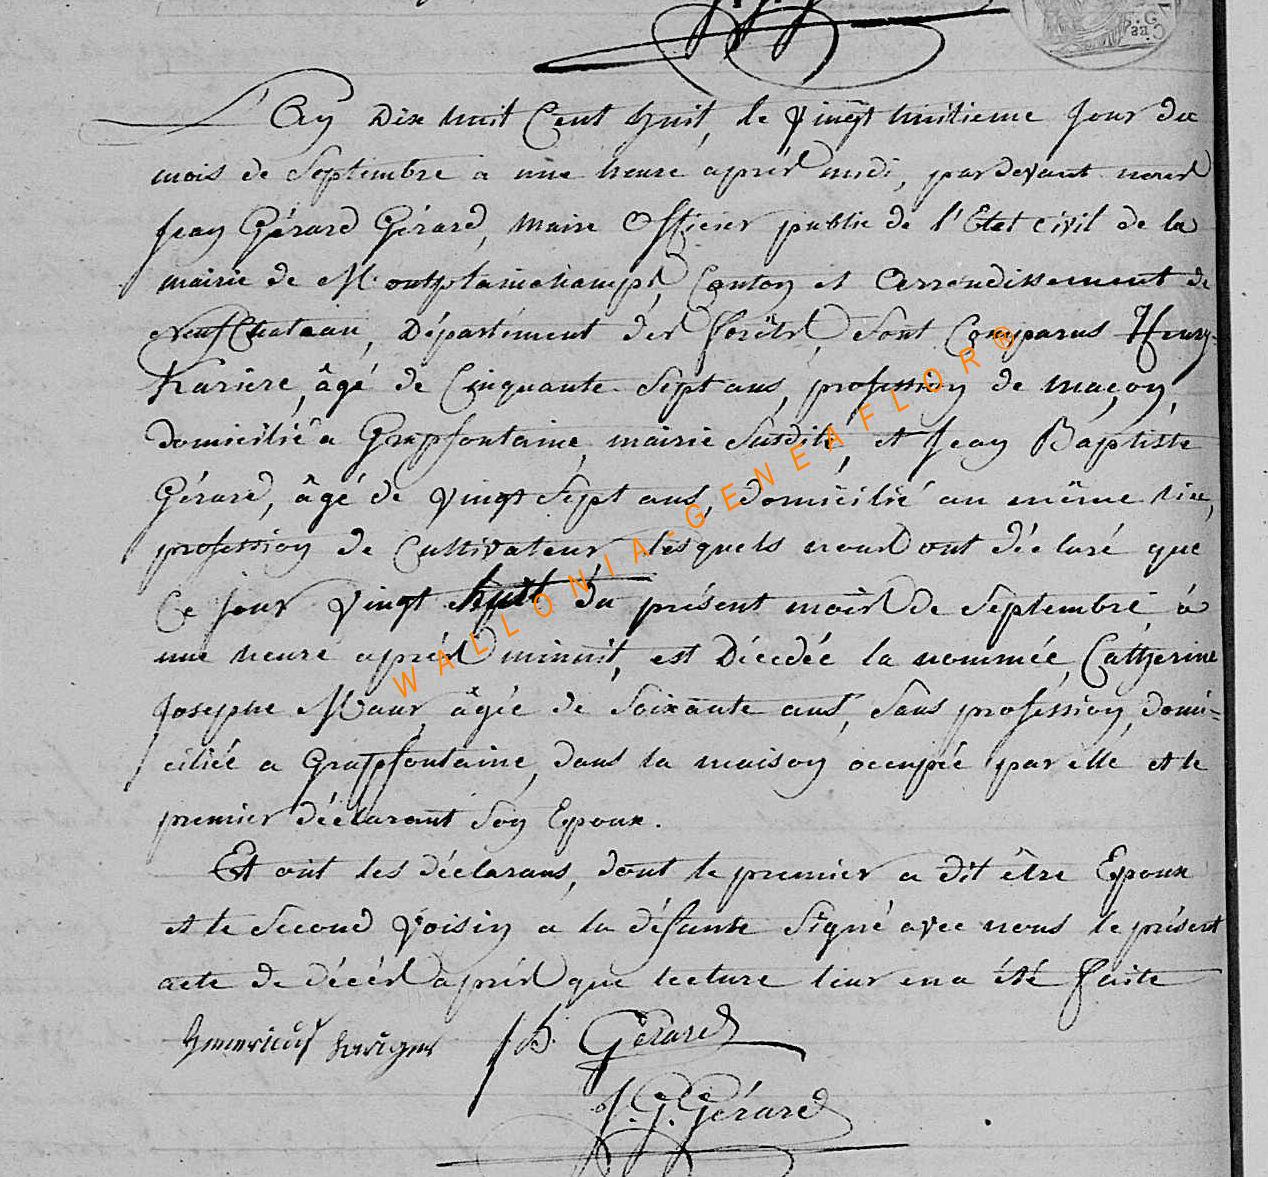 L'An Dix huit Cent huit, le Vingt huitieme Jour du
mois de Septembre a une heure après midi, pardevant nous
Jean Gérard Gérard, Maire Officier public de l'Etat civil de la
mairie de Montplainchamps, Canton et Arrondissement de
Neufchateau, Département des forêts, sont Comparus Henry
Karière, âgé de Cinquante-Sept ans, profession de maçon,
domicilié a Grapfontaine, mairie Susdite, et Jean Baptiste
Gérard, âgé de Vingt Sept ans, domicilié au même lieu,
profession de Cultivateur lesquels nous ont déclaré que
Ce jour Vingt huit du présent mois de Septembre à
une heure après minuit, est Décédée la nommée, Catherine
Josephe Maur, âgée de Soixante ans, Sans profession, domi=
ciliée a Grapfontaine, dans la maison occupée par elle et le
premier déclarant Son Epoux.
Et ont les déclarans, dont le premier a dit être Epoux
et le Second Voisin a la défunte Signé avec nous le présent
acte de décès après que lecture leur en a été faite
Henericus J B. Gérard
J. G. Gérard
WALLONIA-GENEAFLOR®